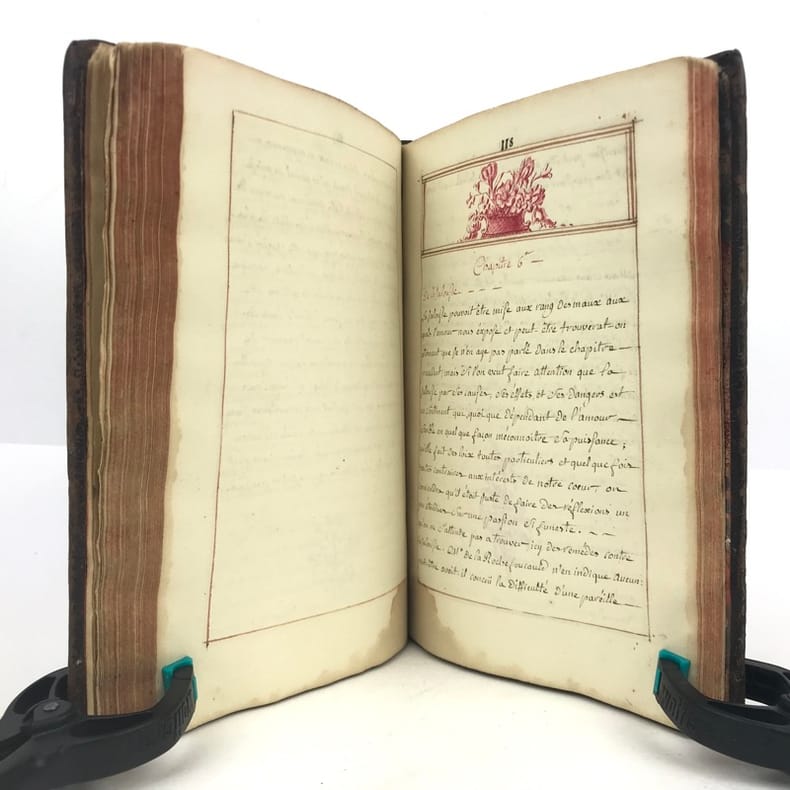 118
Chapitre 6e
De la Jalousie
La Jalousie pouvoit être mise aux rang des maux aux
quels l'amour nous expose et peut être trouverat-on
que je n'en aye pas parlé dans le chapitre
mais si l'on veut faire attention que la
Jalousie par ses causes, ses effets et ses dangers est
un sentiment qui, quoi que dépendant de l'amour
semble en quelque façon meconnoitre sa puissance ;
qu'elle fait des loix toutes particuliers et quelque fois
contraires aux intérêts de notre coeur, on
qu'il étoit juste de faire des réflexions un
peu étendues sur une passion si funeste.
qu'on ne s'attende pas a trouver icy des remedes contre
la Jalousie. Mr. de la Rochefoucauld n'en indique aucun :
peut être avoit-il concû la difficulté d'une pareille